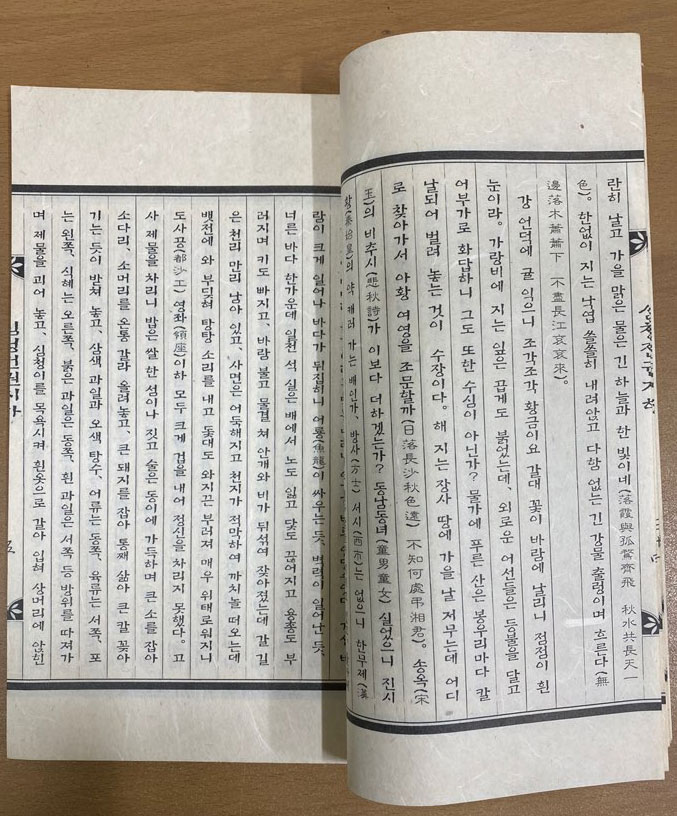 란히 날고 가을 맑은 물은 긴 하늘과 한 빛이네(落霞與孤鶩齊飛 秋水共長天一
色). 한없이 지는 낙엽 쓸쓸히 내려앉고 다함 없는 긴 강물 출렁이며 흐른다(無
邊落木蕭蕭下 不盡長江哀哀來).
강 언덕에 귤 익으니 조각조각 황금이요 갈대 꽃이 바람에 날리니 점점이 흰
눈이라. 가랑비에 지는 잎은 곱게도 붉었는데, 외로운 어선들은 등불을 달고
어부가로 화답하니 그도 또한 수심이 아닌가? 물가에 푸른 산은 봉우리마다 칼
날되어 벌려 놓는것이 수장이다. 해 지는 장사 땅에 가을 날 저무는데 어디
로 찾아가서 아황 여영을 조문할까(日落長沙秋色遠 不知何處弔湘君). 송옥(宋
玉)의 비추시(悲秋詩)가 이보다 더하겠는가? 동남동녀(童男童女) 실었으니 진시
황(秦始皇)의 약 캐러 가는 배인가, 방사(方士) 서시(西市)는 없으니 한무제(漢
람이 크게 일어나 바다가 뒤집히니 어룡(魚龍)이 싸우는 듯, 벼락이 일어난 듯,
너른 바다 한가운데 일천 석 실은 배에서 노도 잃고 닻도 끊어지고 용총도 부
러지며 키도 빠지고, 바람 불고 물결 쳐 안개와 비가 뒤섞여 잦아졌는데 갈 길
은 천리 만리 남아 있고, 사면은 어둑해지고 천지가 적막하여 까치놀 떠오는데
뱃전에 와 부딪혀 탕탕 소리를 내고 돛대도 와지끈 부러져 매우 위태로워지니
도사공(都沙工) 영좌(領座)이하 모두 크게 겁을 내어 정신을 차리지 못했다. 고
사 제물을 차리니 밥은 쌀 한 섬이나 짓고 술은 동이에 가득하며 큰 소를 잡아
소다리, 소머리를 온통 갈라 올려놓고, 큰 돼지를 잡아 통째 삶아 큰 칼 꽂아
기는 듯이 받쳐 놓고, 삼색 과일과 오색 탕수, 어류는 동쪽, 육류는 서쪽, 포
는 왼쪽, 식혜는 오른쪽, 붉은 과일은 동쪽, 흰 과일은 서쪽 등 방위를 따져가
며 제물을 괴어 놓고, 심청이를 목욕시켜 흰옷으로 갈아 입혀 상머리에 앉힌